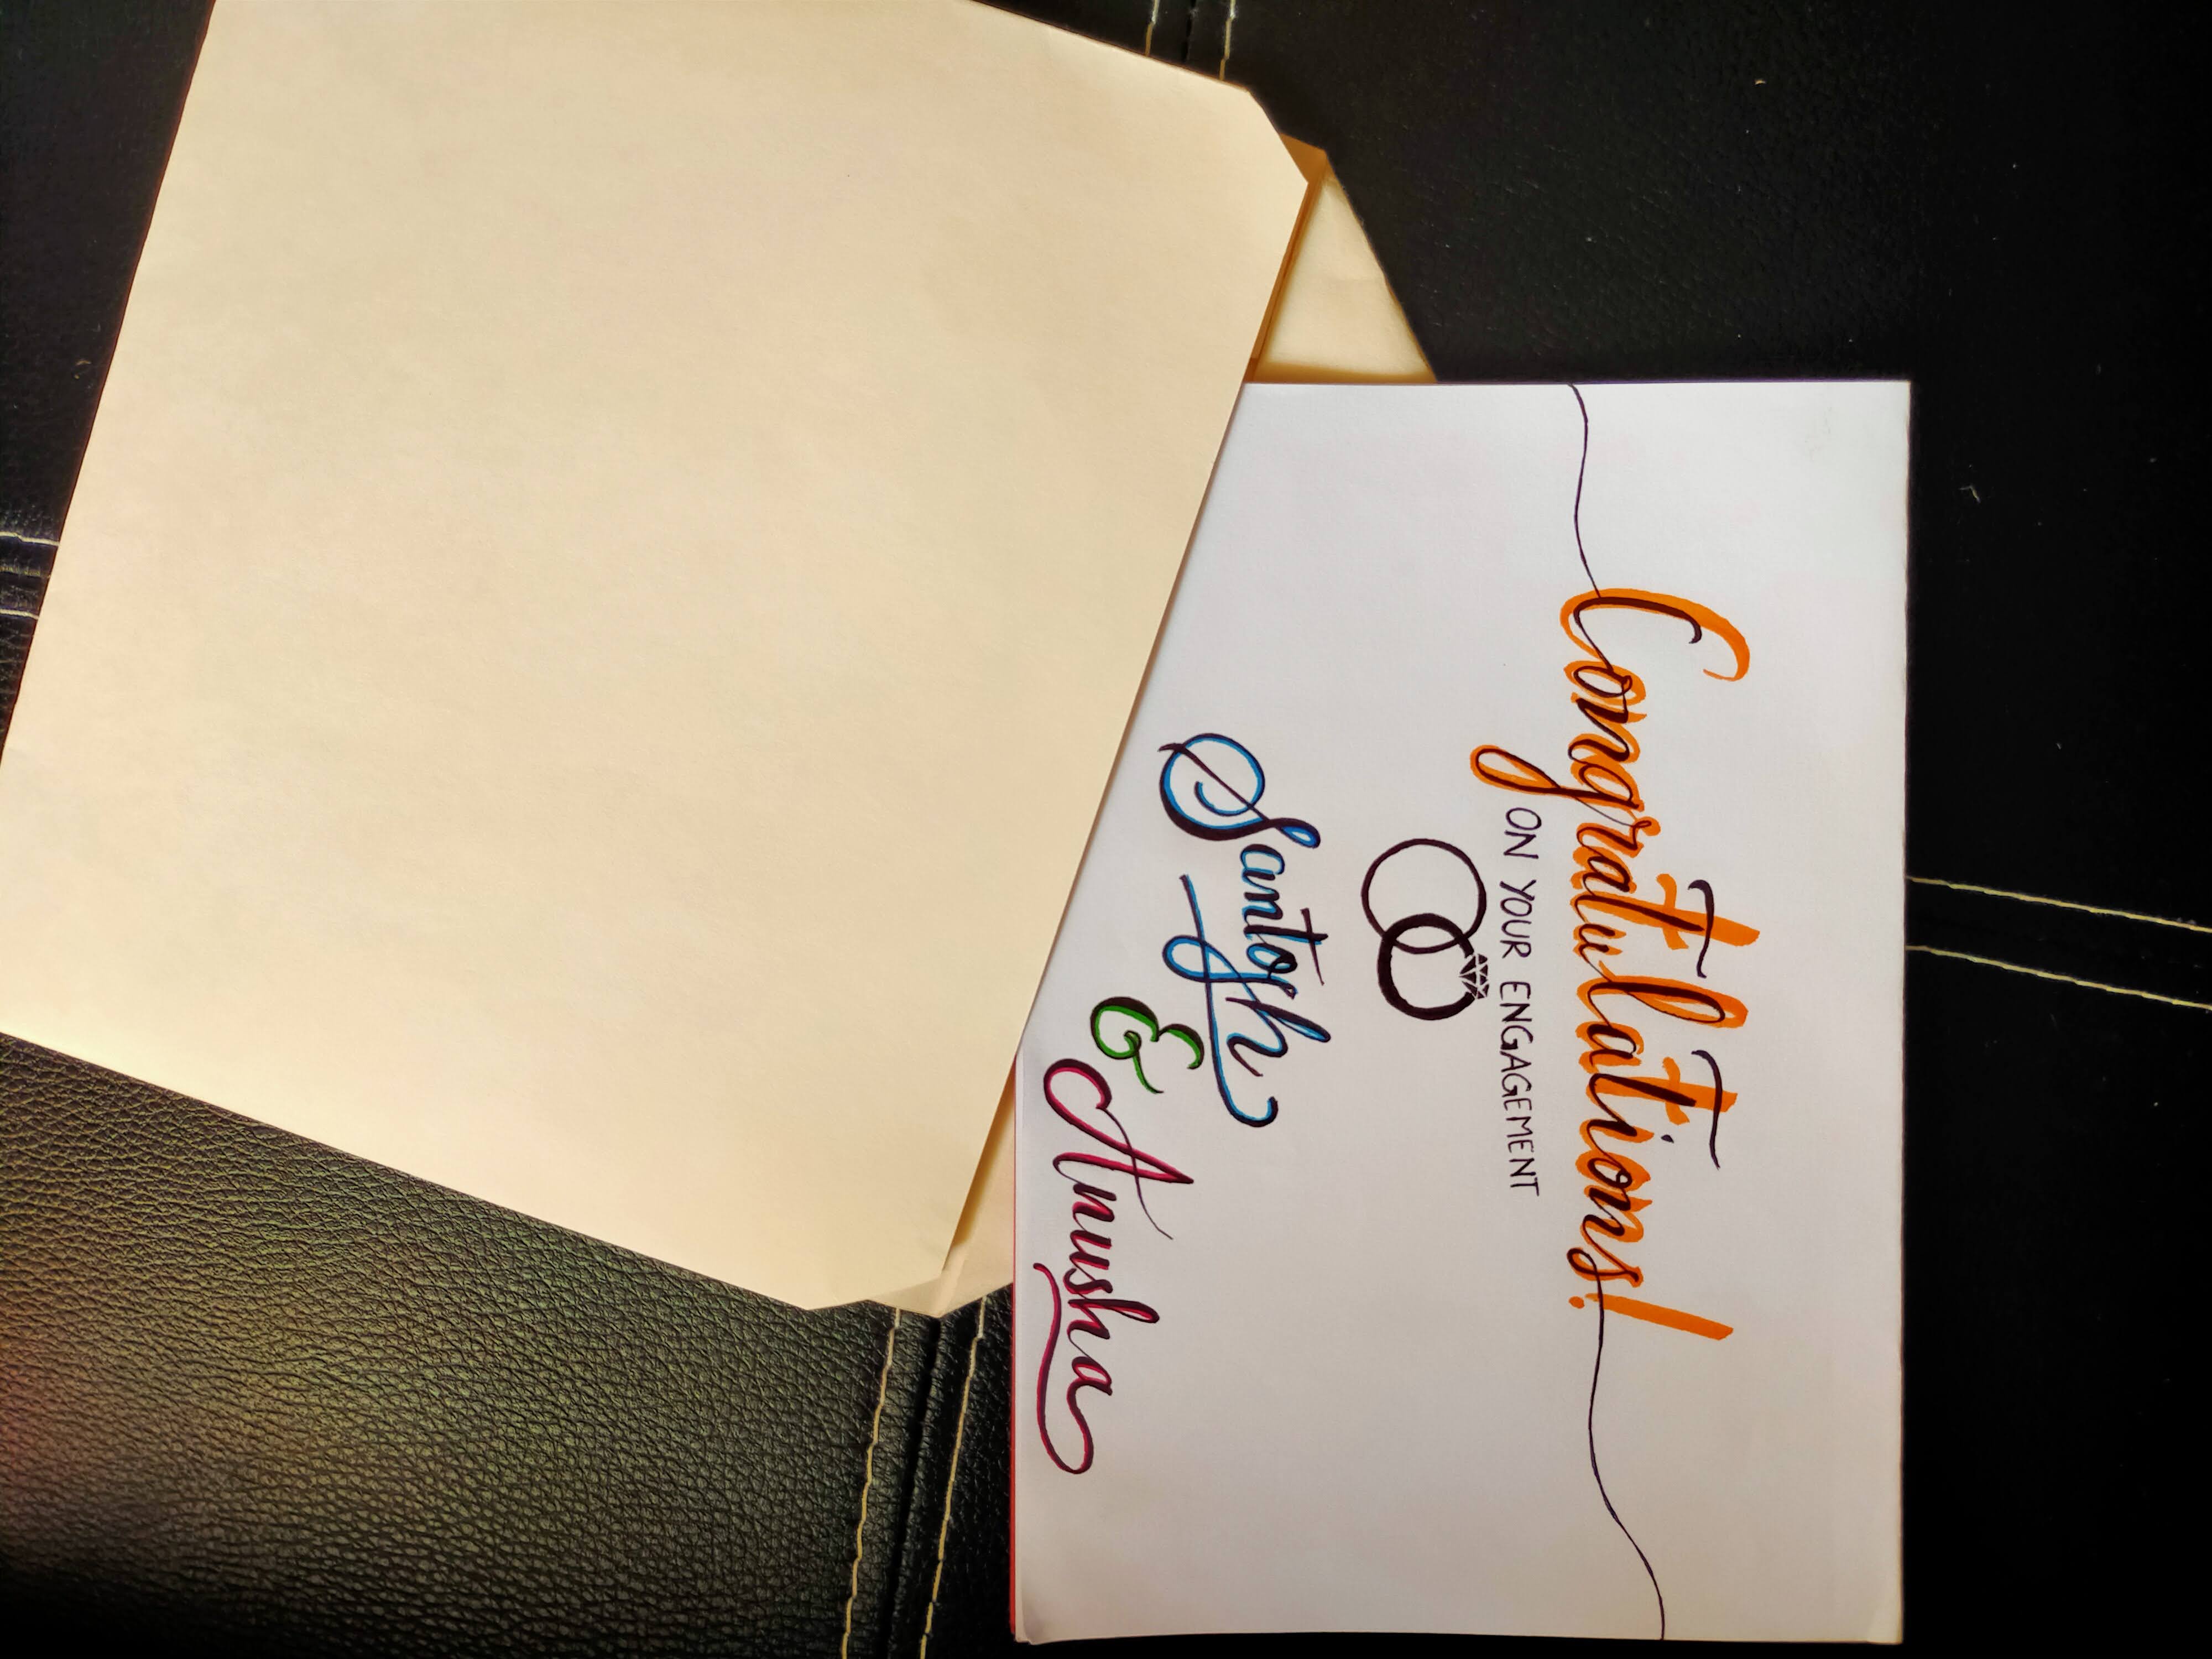 Congratulations!
ON YOUR ENGAGEMENT
Santosh
&
Anusha